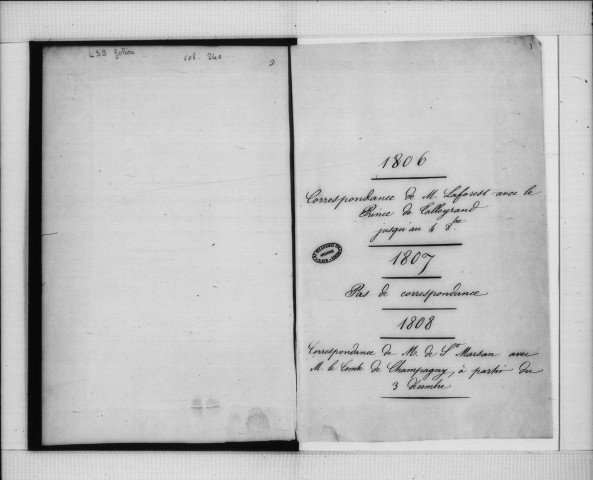 439 folios
vol. 240
1
1806
Correspondance de M. Laforest avec le
Prince de Talleyrand
jusqu'au 4 8bre
1807
Pas de correspondance
1808
Correspondance de M. de St Marsan avec
M. le Comte de Champagny, à partir du
3 décembre